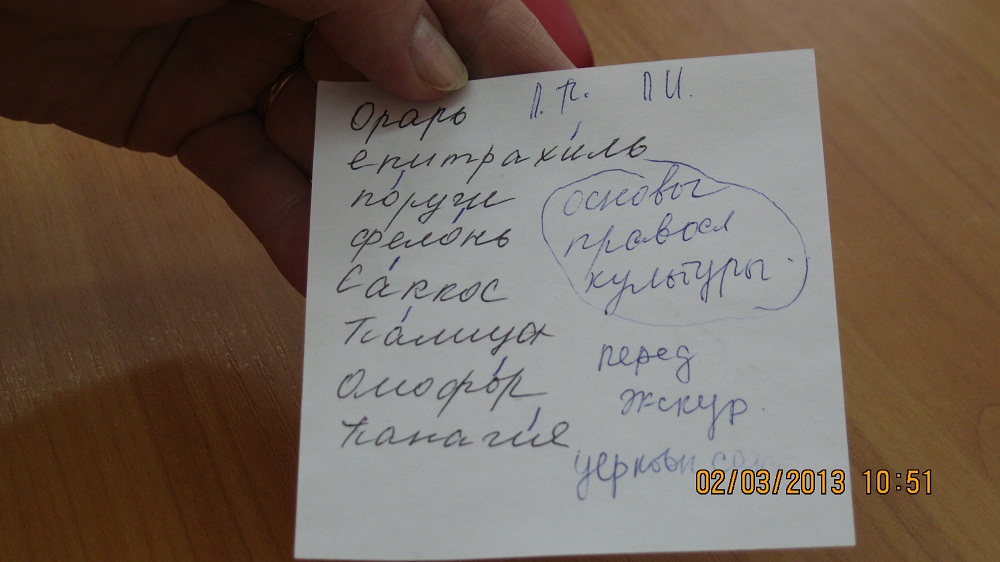 Орарь П.П. П И.
епитрахи́ль
по́ручи
фело́нь
Са́ккос
Па́лица
Омофо́р
Панаги́я
основы
правосл
культуры.
перед
экскур.
церковн
02/03/2013 10:51